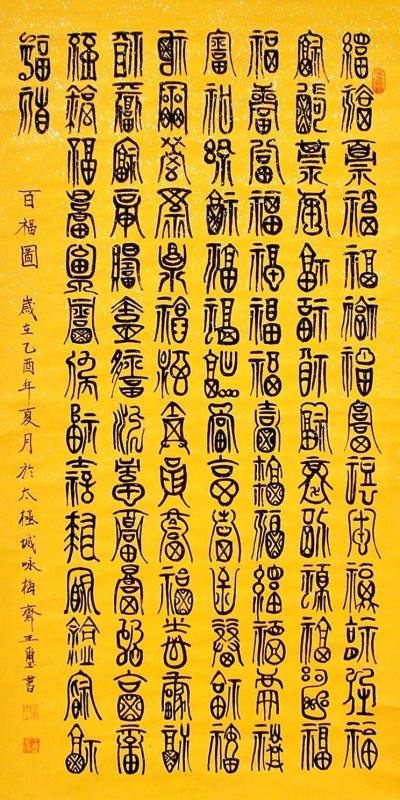 福福福福福福福福福福福福福福
福福福福福福福福福福福福福福
福福福福福福福福福福福福福福
福福福福福福福福福福福福福福
福福福福福福福福福福福福福福
福福福福福福福福福福福福福福
福福福福福福福福福福福福福福
福福
百福圖 歲在乙酉年夏月於太極城咏梅齋王璽書